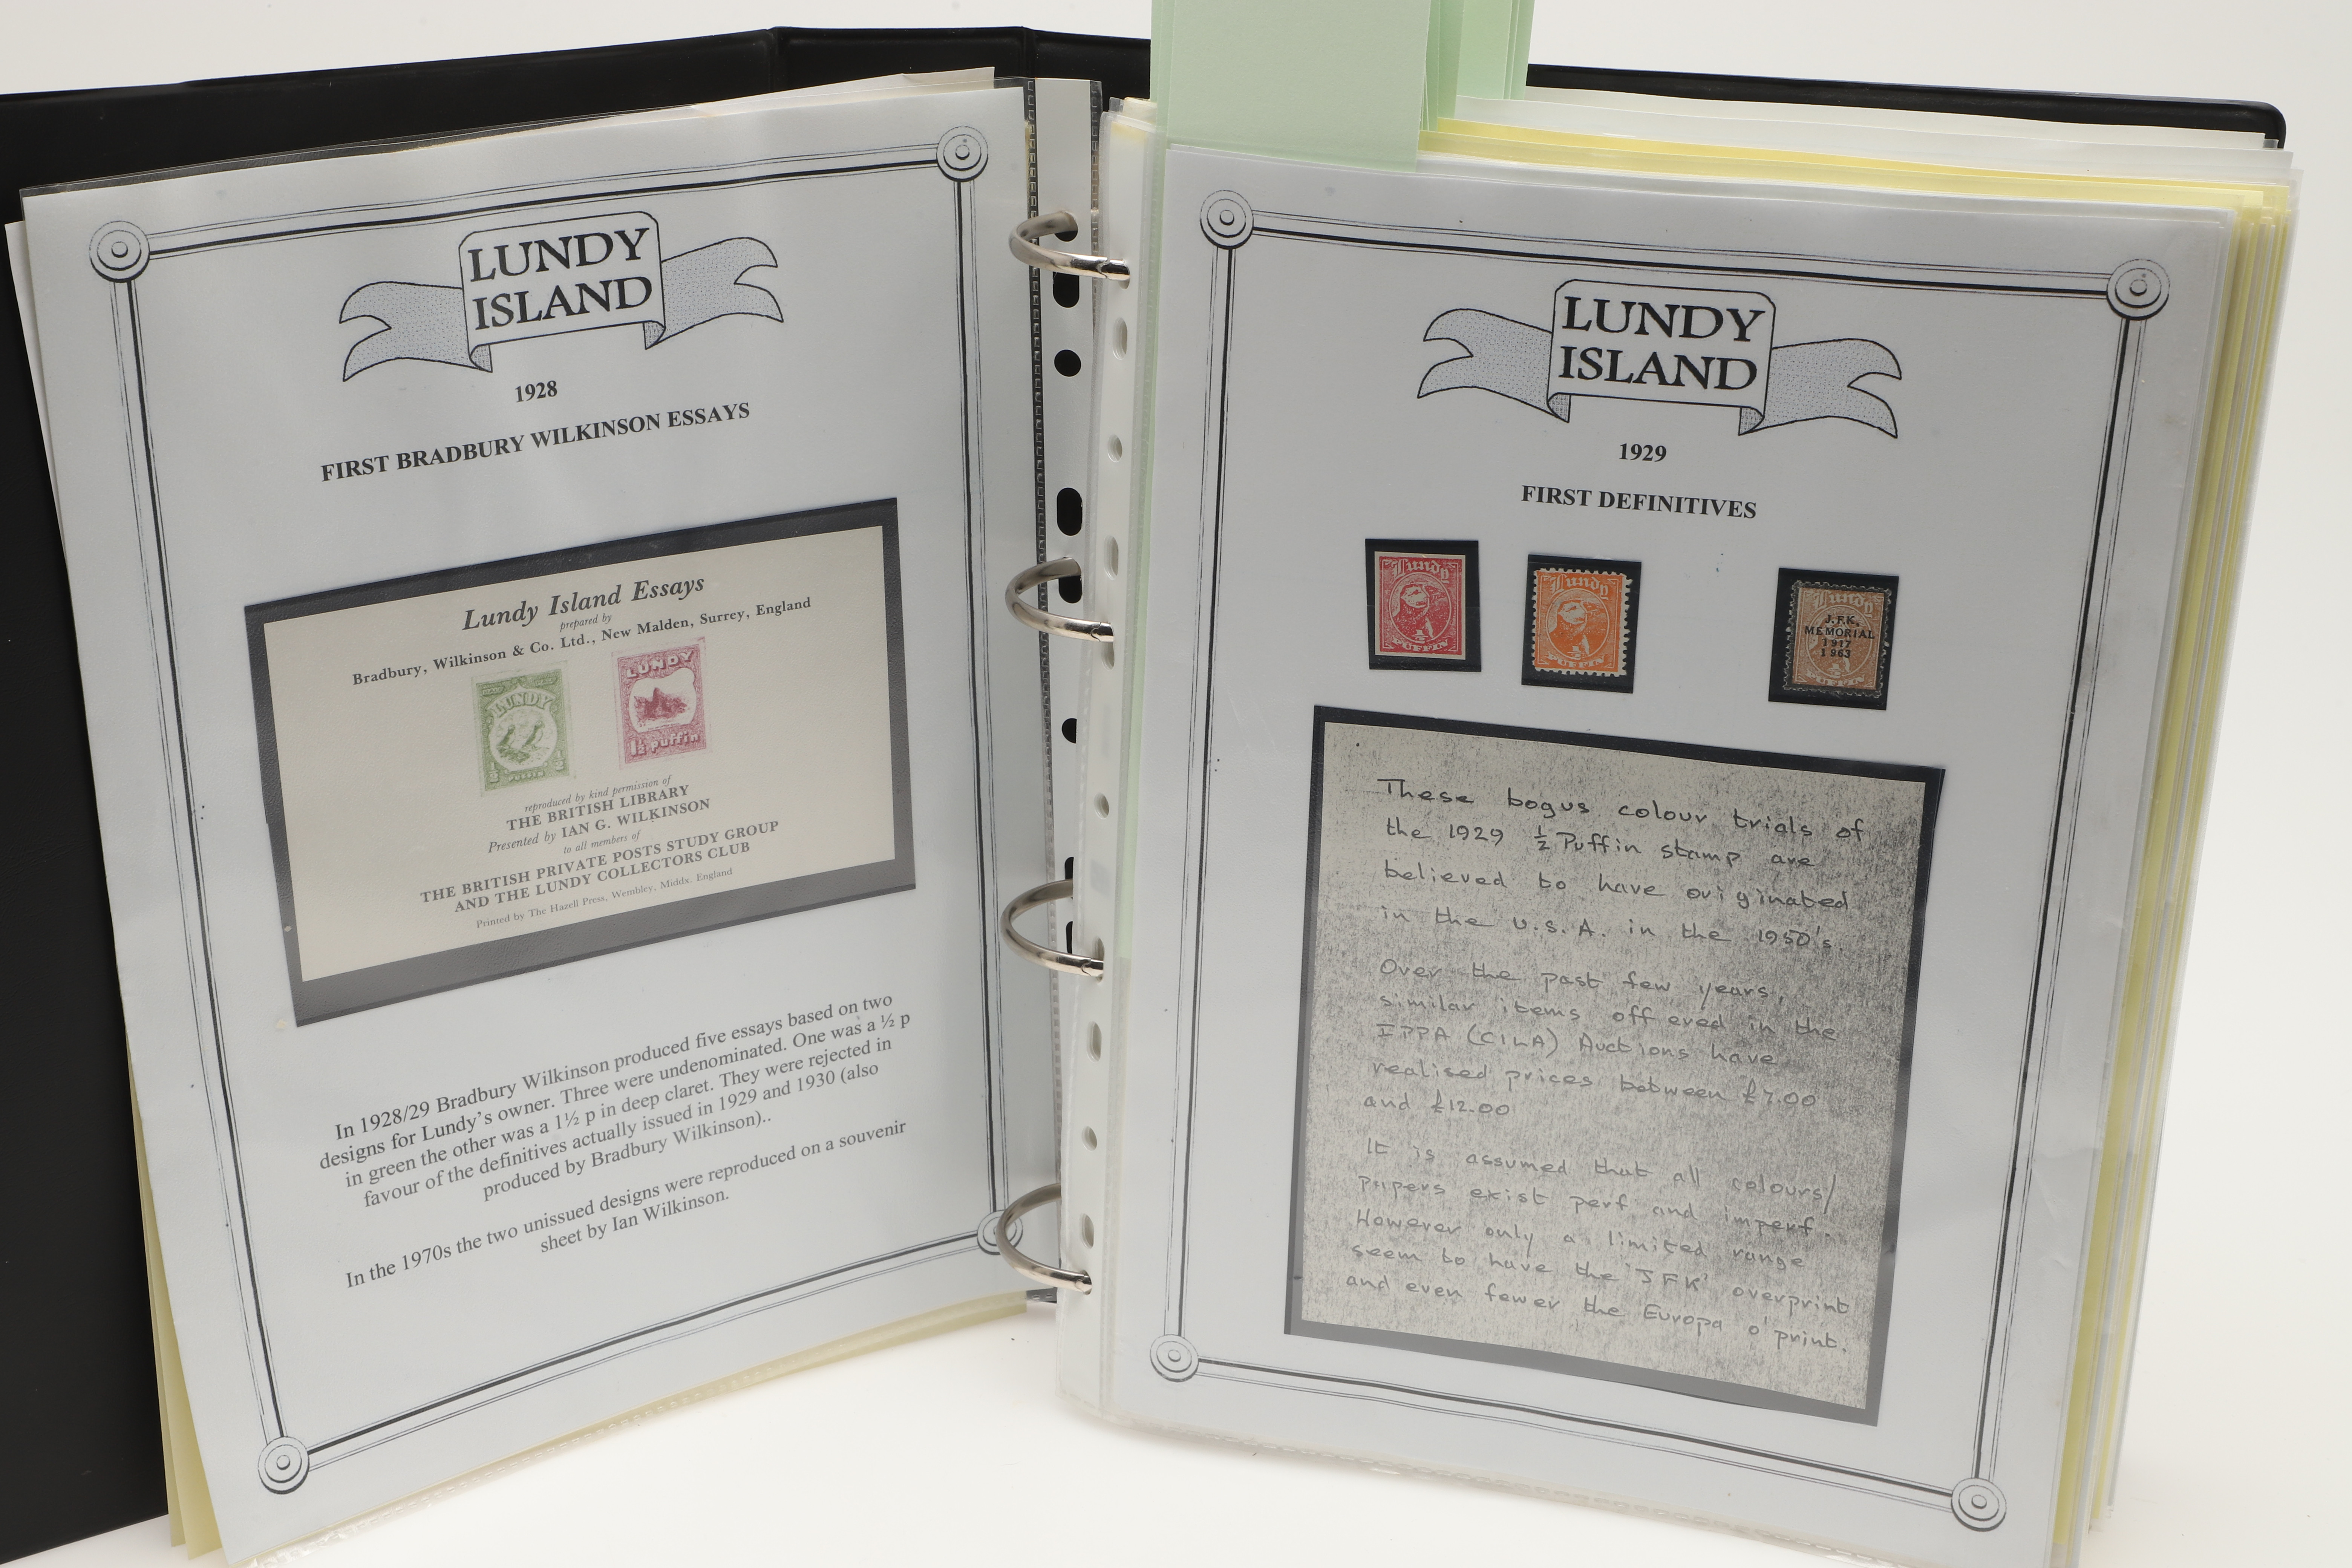 LUNDY
ISLAND
1928
FIRST BRADBURY WILKINSON ESSAYS
Lundy Island Essays
prepared by
Bradbury, Wilkinson & Co. Ltd., New Malden, Surrey, England
LUNDY
1/2
1/2
PUFFIN
LUNDY
1½ puffin
reproduced by kind permission of
THE BRITISH LIBRARY
Presented by IAN G. WILKINSON
to all members of
THE BRITISH PRIVATE POSTS STUDY GROUP
AND THE LUNDY COLLECTORS CLUB
Printed by The Hazell Press, Wembley, Middx. England
In 1928/29 Bradbury Wilkinson produced five essays based on two
designs for Lundy's owner. Three were undenominated. One was a ½ p
in green the other was a 1½ p in deep claret. They were rejected in
favour of the definitives actually issued in 1929 and 1930 (also
produced by Bradbury Wilkinson)..
In the 1970s the two unissued designs were reproduced on a souvenir
sheet by Ian Wilkinson.
LUNDY
ISLAND
1929
FIRST DEFINITIVES
Lundy
½
PUFFIN
Lundy
½
PUFFIN
Lundy
J.F.K.
MEMORIAL
1917
1963
PUFFIN
These bogus colour trials of
the 1929 ½ Puffin stamp are
believed to have originated
in the U.S.A. in the 1950's.
Over the past few years,
similar items offered in the
IPPA (CILA) Auctions have
realised prices between £7.00
and £12.00
It is assumed that all colours/
papers exist perf and imperf.
However only a limited range
seem to have the 'JFK' overprint
and even fewer the Europa o'print.